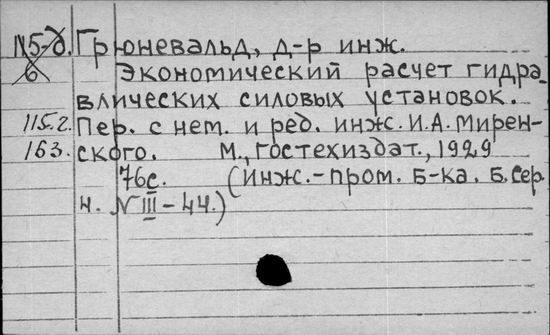 N5-д. Грюневальд, д-р инж.
6 Экономический расчет гидра-
влических силовых установок.
115.2. Пер. с нем. и ред. инж. И.А. Мирен-
163. ского. М., Гостехиздат., 1929
76с. (инж.-пром. Б-ка. Б. сер.
н. № III-44.)